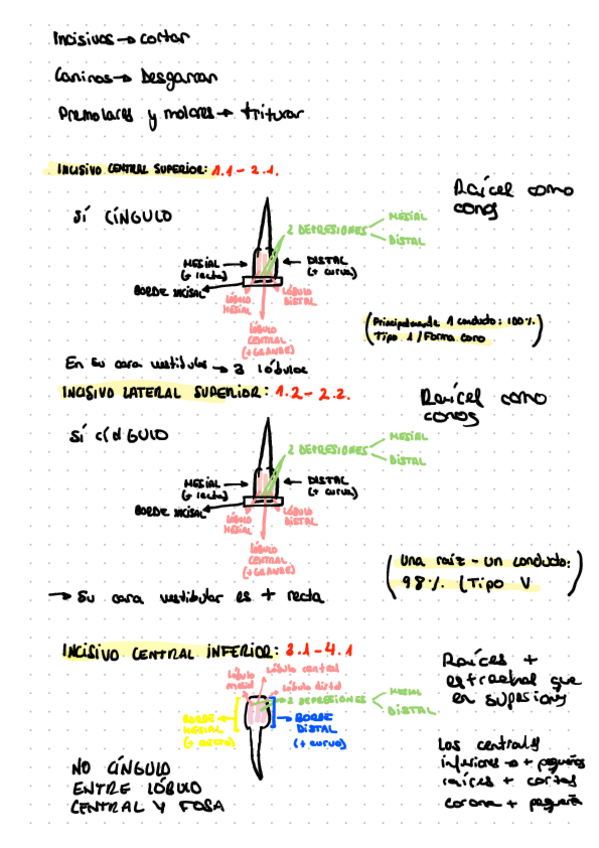 Incisivos → cortar
Caninos → Desgarran
Premolares y molares → triturar
INCISIVO CENTRAL SUPERIOR: 1.1 - 2.1.
Raíces como
conos
SÍ CÍNGULO
2 DEPRESIONES
MESIAL
DISTAL
MESIAL
(+ recta)
DISTAL
(+ curva)
BORDE INCISAL
LÓBULO
MESIAL
LÓBULO
DISTAL
LÓBULO
CENTRAL
(+GRANDE)
(Principalmente 1 conducto: 100%.
Tipo 1 / Forma cono)
En su cara vestibular → 3 lóbulos
INCISIVO LATERAL SUPERIOR: 1.2 - 2.2.
como
conos
SÍ CÍNGULO
2 DEPRESIONES
MESIAL
DISTAL
MESIAL
(+ recta)
DISTAL
(+ curva)
BORDE INCISAL
LÓBULO
MESIAL
LÓBULO
DISTAL
LÓBULO
CENTRAL
(+GRANDE)
(Una raíz - un conducto:
98%. (Tipo V)
→ Su cara vestibular es + recta
INCISIVO CENTRAL INFERIOR: 3.1 - 4.1
Raíces +
estrechas que
en
Lóbulo central
Lóbulo
mesial
Lóbulo distal
2 DEPRESIONES
MESIAL
DISTAL
BORDE
MESIAL
(+ recto)
→ BORDE
DISTAL
(+ curvo)
Los centrales
inferiores → + pequeños
raíces + cortas
corona + pequeña
NO CÍNGULO
ENTRE LÓBULO
CENTRAL Y FOSA